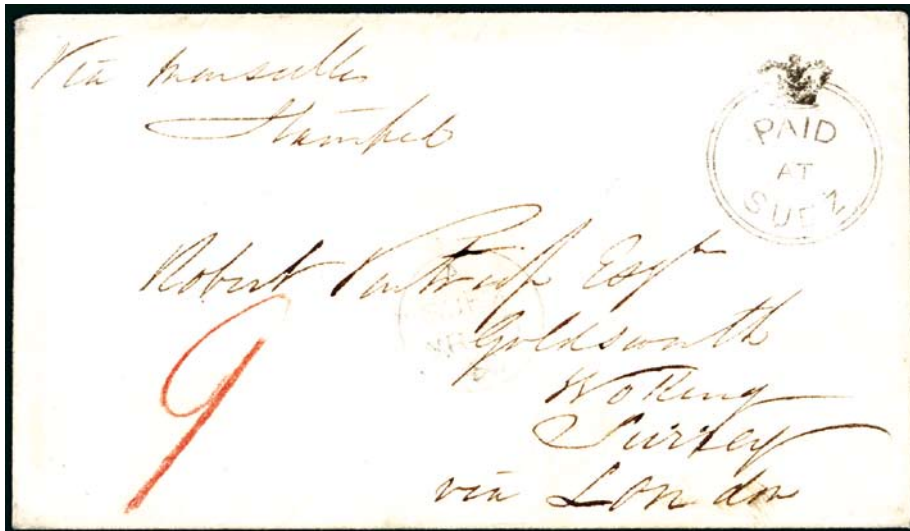 Via Marseilles
Stamped
PAID
AT
SUEZ
Robert Esqr
Goldsworth
Woking
Surrey
via London
9